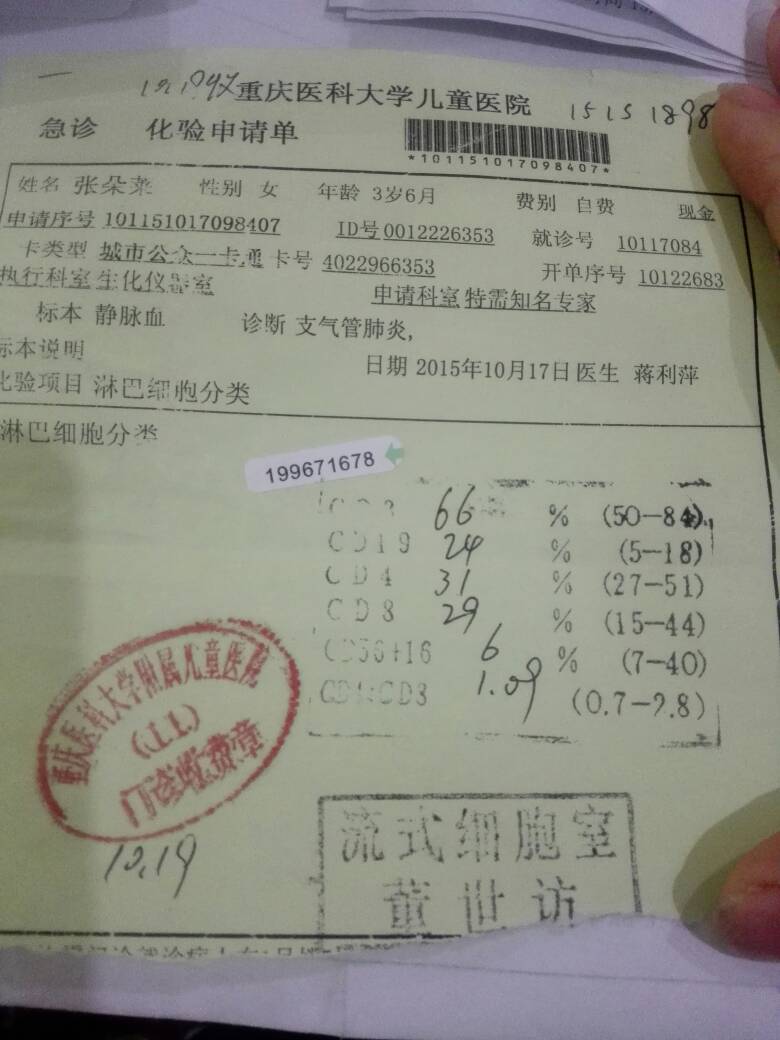 重庆医科大学儿童医院
15151898
急诊 化验申请单
*101151017098407*
姓名 张朵莱 性别 女 年龄 3岁6月 费别 自费 现金
申请序号 101151017098407 ID号 0012226353 就诊号 10117084
卡类型 城市公众一卡通 卡号 4022966353 开单序号 10122683
执行科室 生化仪器室 申请科室 特需知名专家
标本 静脉血 诊断 支气管肺炎,
标本说明
日期 2015年10月17日 医生 蒋利萍
化验项目 淋巴细胞分类
淋巴细胞分类
199671678
CD3 66 % (50-84)
CD19 24 % (5-18)
CD4 31 % (27-51)
CD8 29 % (15-44)
CD56+16 6 % (7-40)
CD4:CD8 1.09 (0.7-2.8)
重庆医科大学附属儿童医院
(11)
门诊收费章
10.19
流式细胞室
董世访